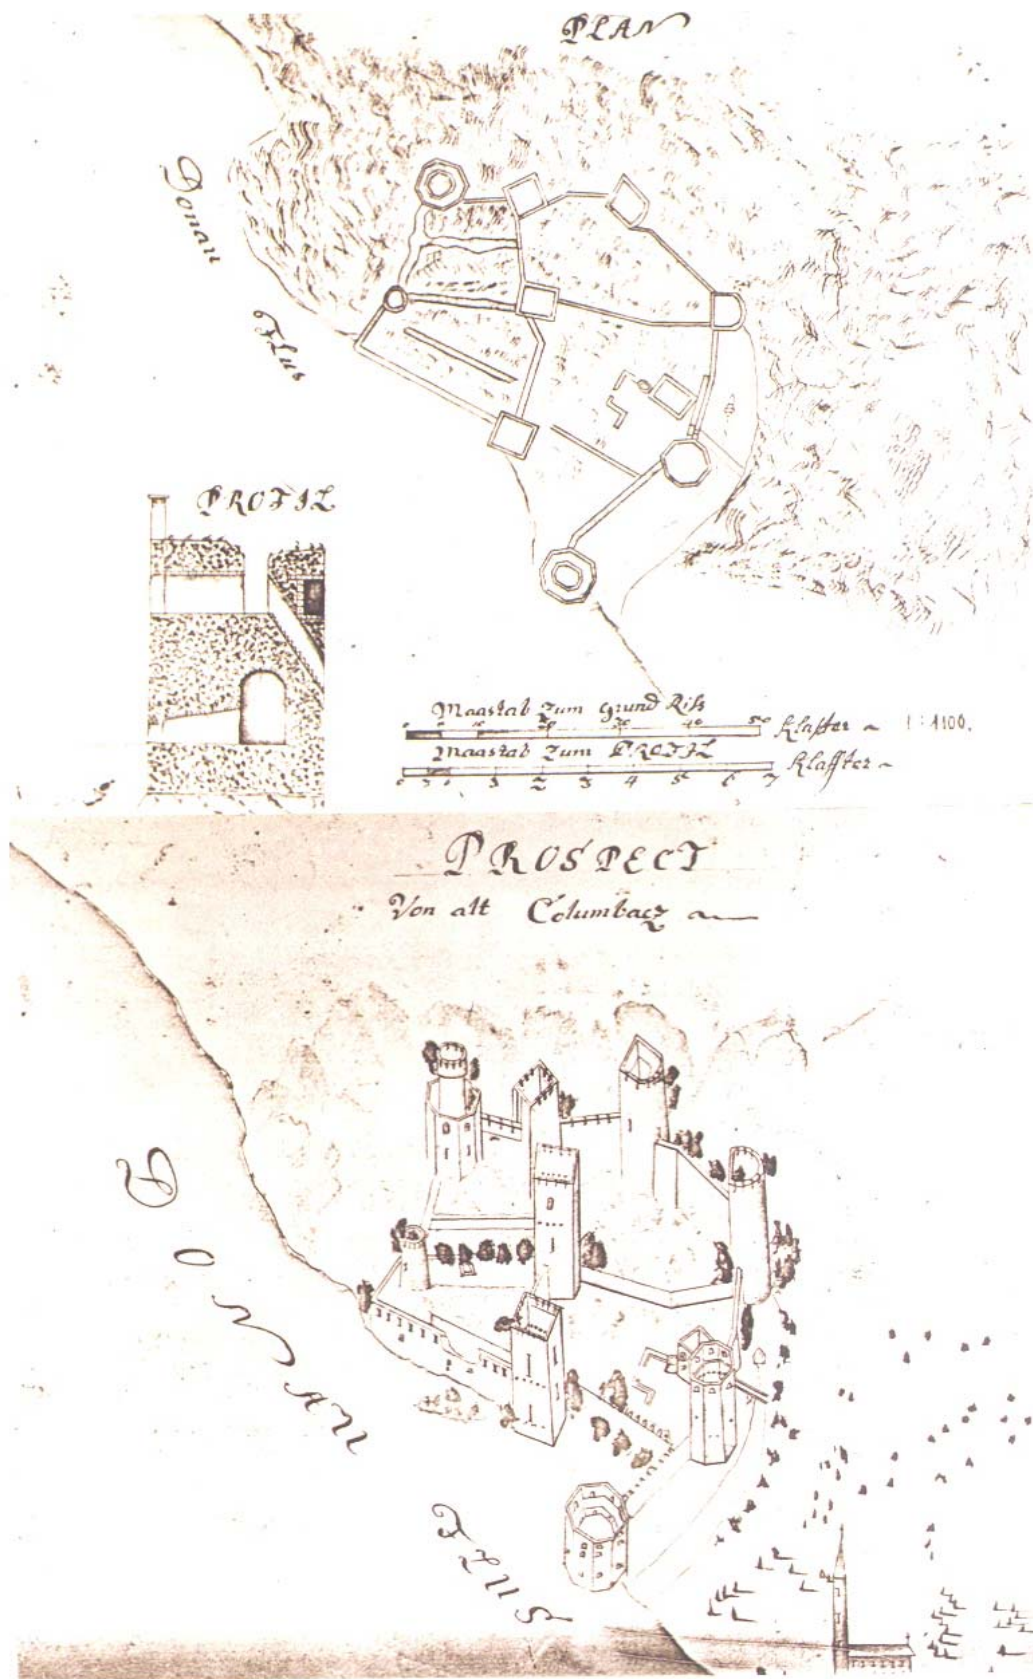 PLAN
Donau
Flus
PROFIL
Maastab zum grund Riss
0 10 20 30 40 50 Klaffter 1:1100.
Maastab zum PROFIL
0 3 0 1 2 3 4 5 6 7 Klaffter
PROSPECT
Von alt Columbacz
DONAU
FLUS